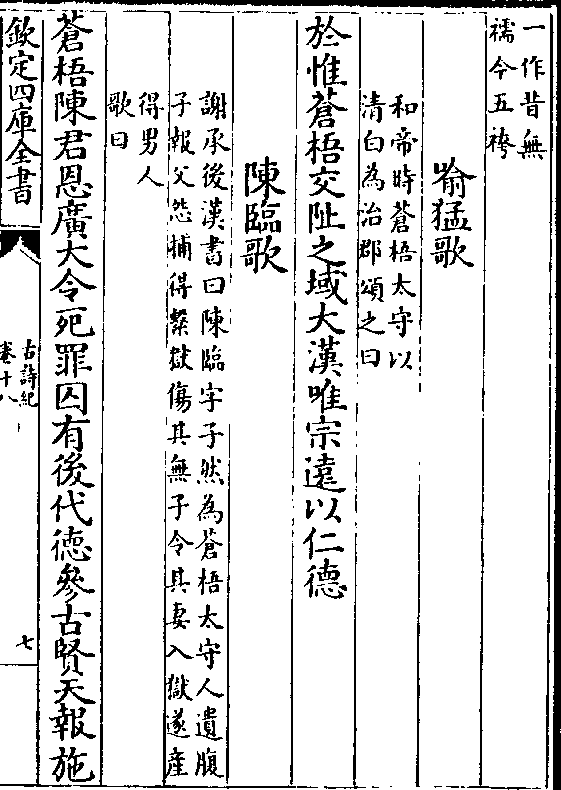 一作昔無
襦今五袴
喻猛歌
和帝時蒼梧太守以
清白為治郡頌之曰
於惟蒼梧交阯之域大漢唯宗遠以仁德
陳臨歌
謝承後漢書曰陳臨字子然為蒼梧太守人遺腹
子報父怨捕得繫獄傷其無子令其妻入獄遂產
得男人
歌曰
蒼梧陳君恩廣大令死罪囚有後代德參古賢天報施
欽定四庫全書
古詩紀
卷十八
七